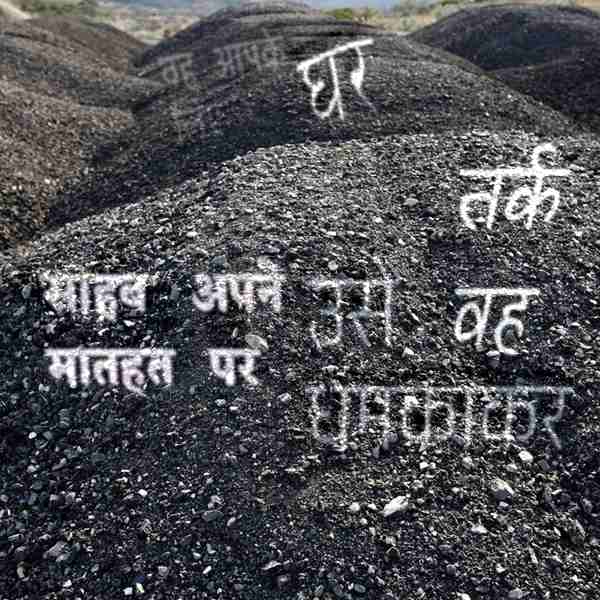 वह आपके
घर
तर्क
साहब अपने
मातहत पर
उसे
धमकाकर
वह